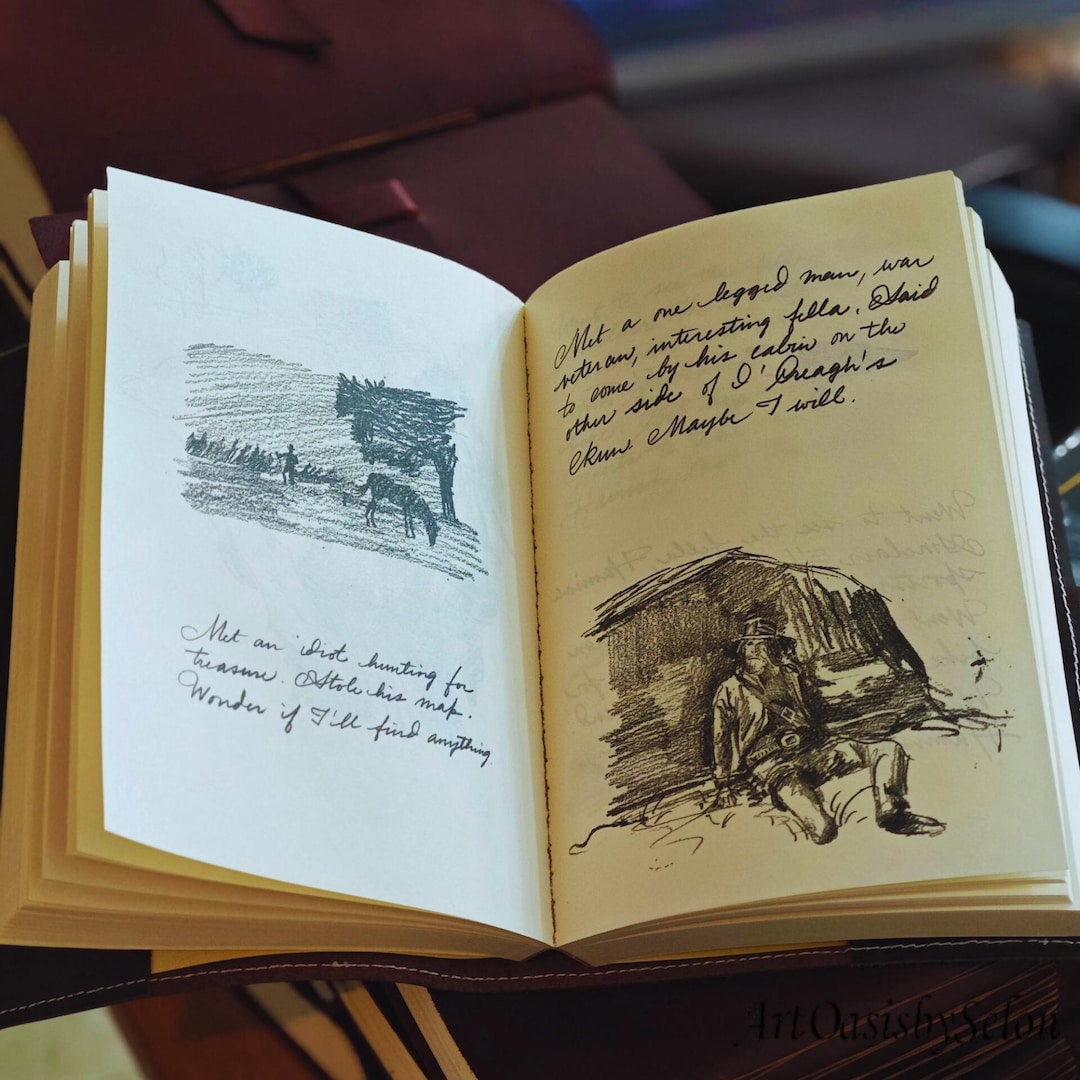 Met an idiot hunting for
treasure. Stole his map.
Wonder if I'll find anything.
Met a one legged man, war
veteran, interesting fella. Said
to come by his cabin on the
other side of O'Creagh's
Run. Maybe I will.
Went to see the fella Hamish
Sinclair
Went
ArtOasisbySelon